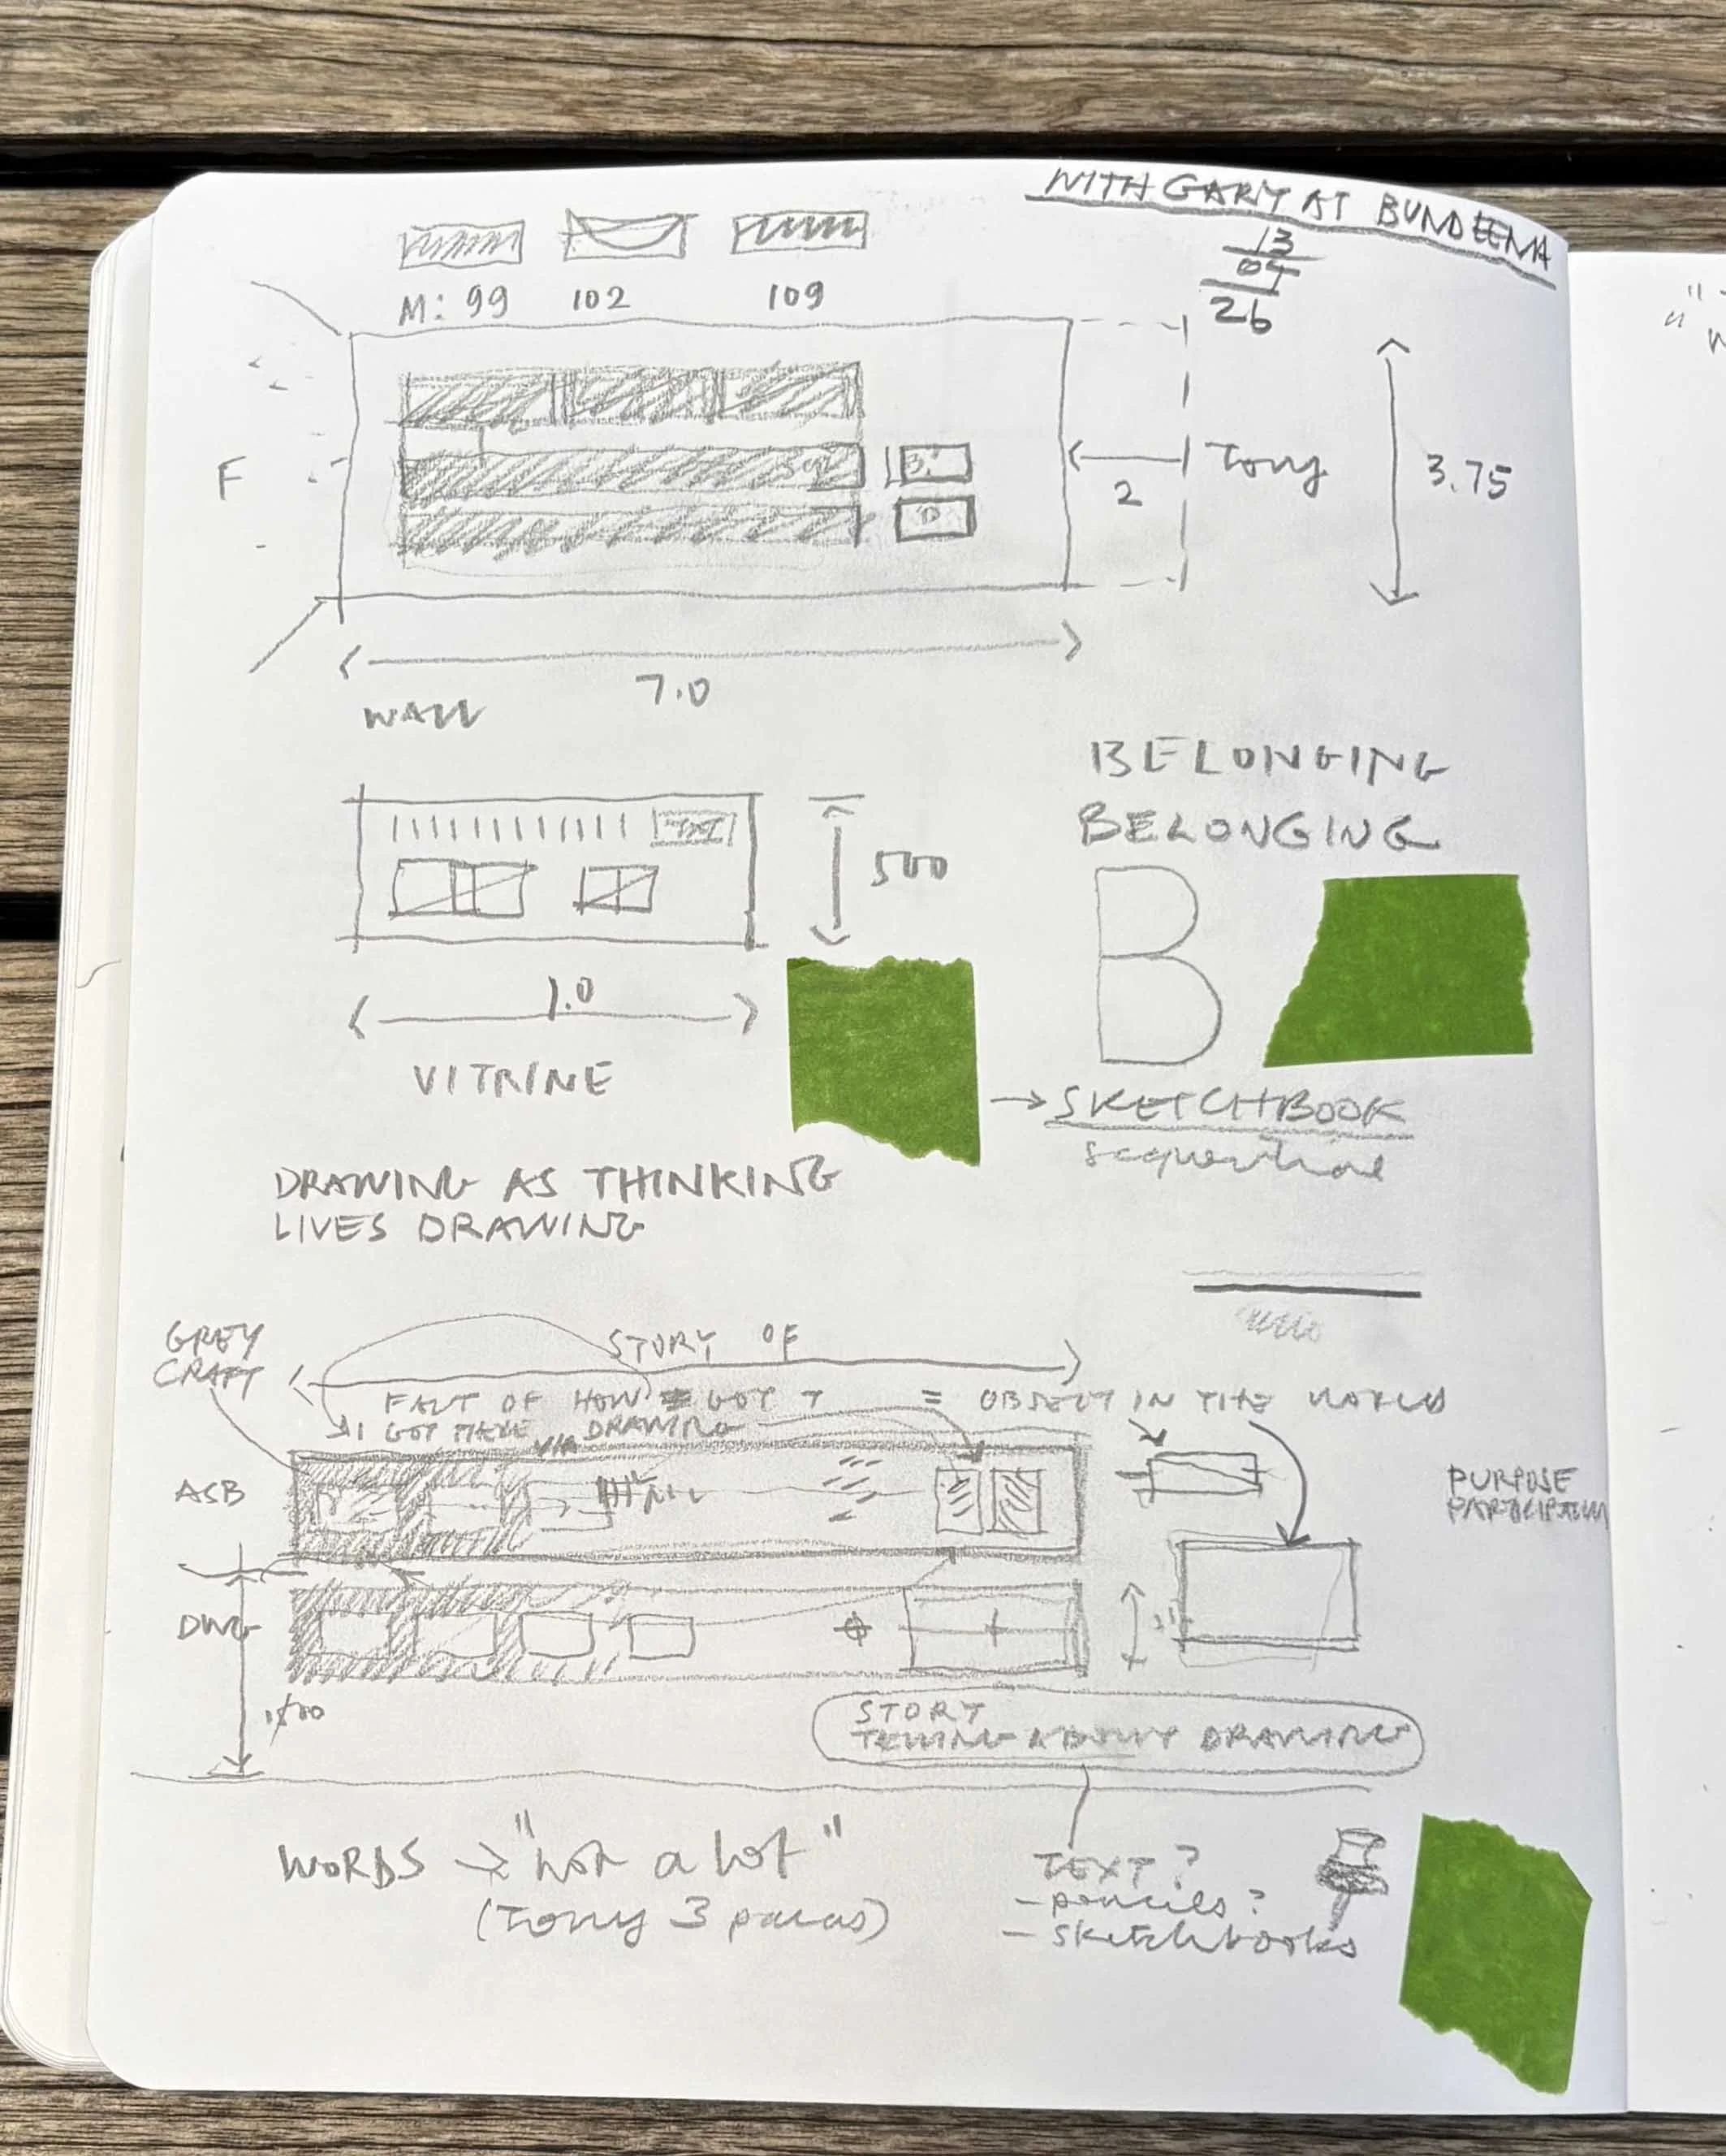 WITH GARY AT BUNDEENA
13
04
26
M: 99 102 109
F
B.
D
2
Tony
3.75
7.0
WALL
TEXT
500
1.0
VITRINE
BELONGING
BELONGING
B
→ SKETCHBOOK
sequential
DRAWING AS THINKING
LIVES DRAWING
GREY
CRAFT
STORY OF
OF HOW GOT = OBJECT IN THE WORLD
I GOT THERE DRAWING
VIA
ASB
PURPOSE
PARTICIPATION
DWG
STORY
TELLING ABOUT DRAWING
WORDS → "not a lot"
(Tony 3 paras)
TEXT?
- pencils?
- sketchbooks